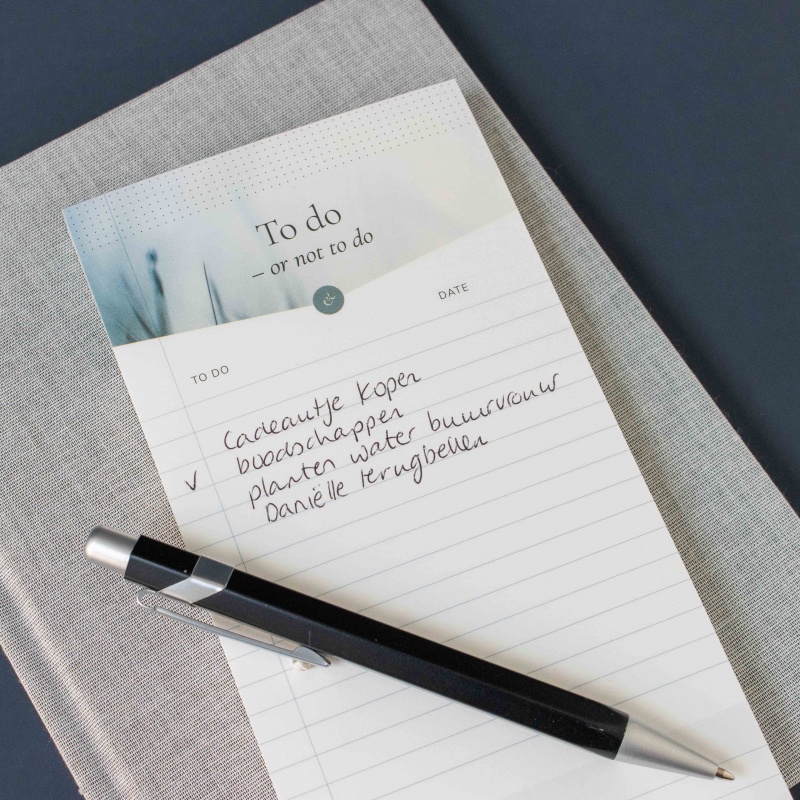 To do
– or not to do
&
DATE
TO DO
Cadeautje kopen
boodschappen
v planten water buurvrouw
Daniëlle terugbellen